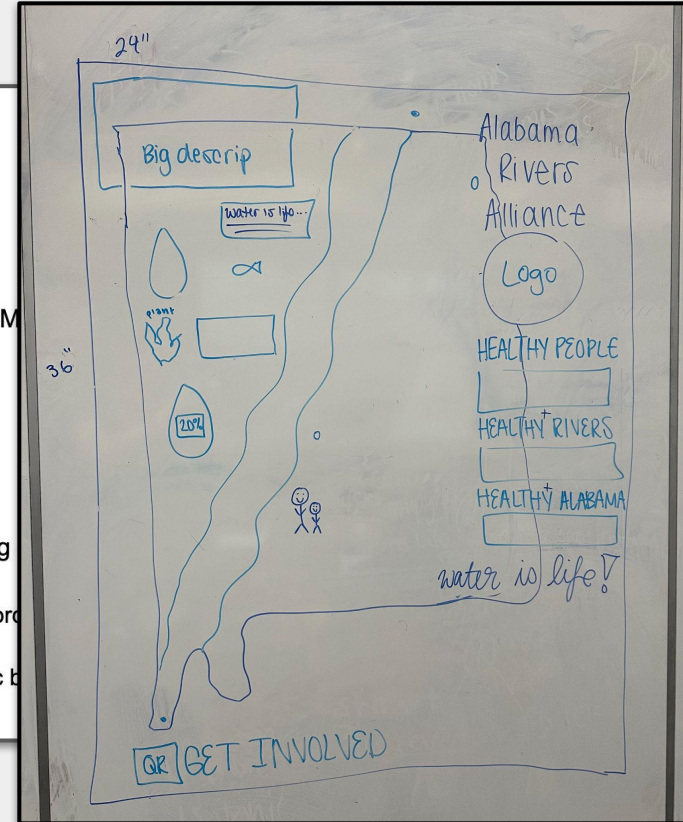 24"
36"
Big descrip
Water is life...
plant
20%
Alabama
Rivers
Alliance
Logo
HEALTHY PEOPLE
+
HEALTHY RIVERS
+
HEALTHY ALABAMA
water is life!
QR GET INVOLVED
M
g